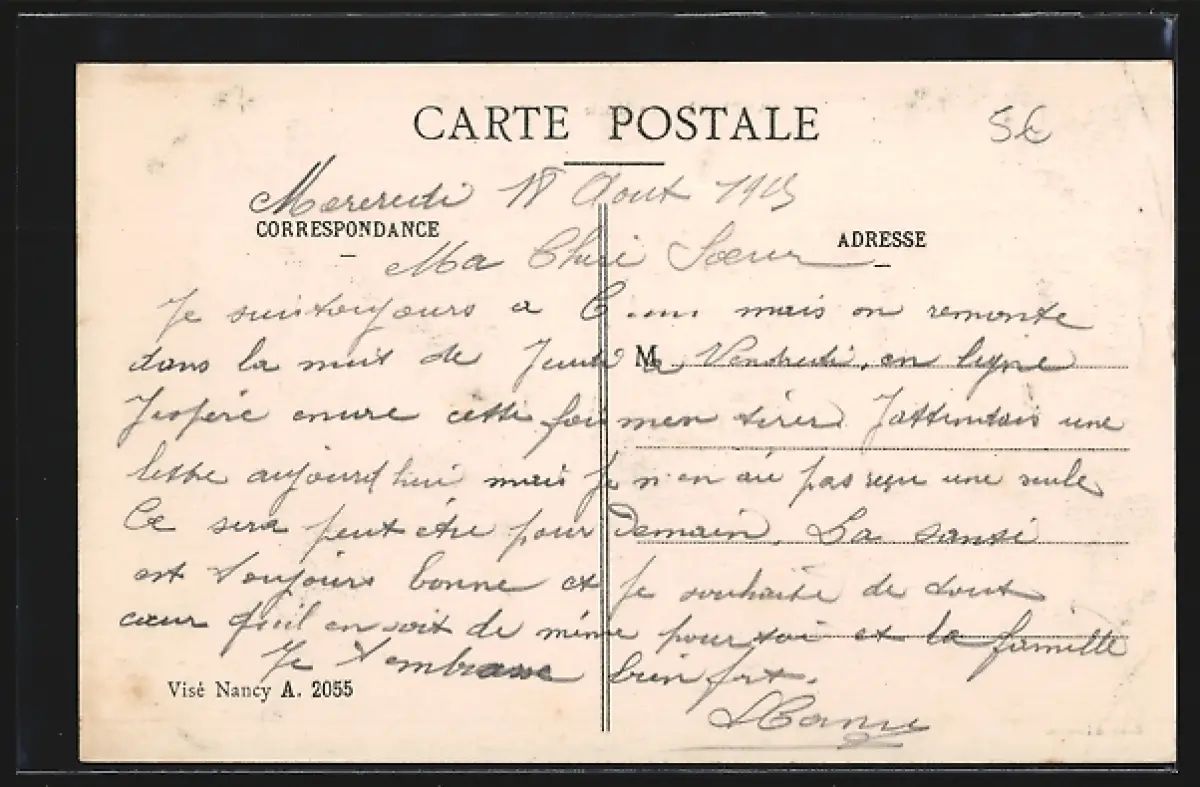 CARTE POSTALE
5€
Mercredi 18 Aout 1915
CORRESPONDANCE
ADRESSE
Ma Cheri Sœur
Je suis toujours a C.... mais on remonte
dans la nuit de Jeudi a Vendredi, en ligne
M
Jespère encore cette fois men tirer Jattendais une
lettre aujourd hui mais Je n en ai pas reçu une seule
Ce sera peut être pour Demain. La santé
est toujours bonne et Je souhaite de tout
cœur qu'il en soit de même pour toi et ta famille
Je t embrasse bien fort.
Visé Nancy A. 2055